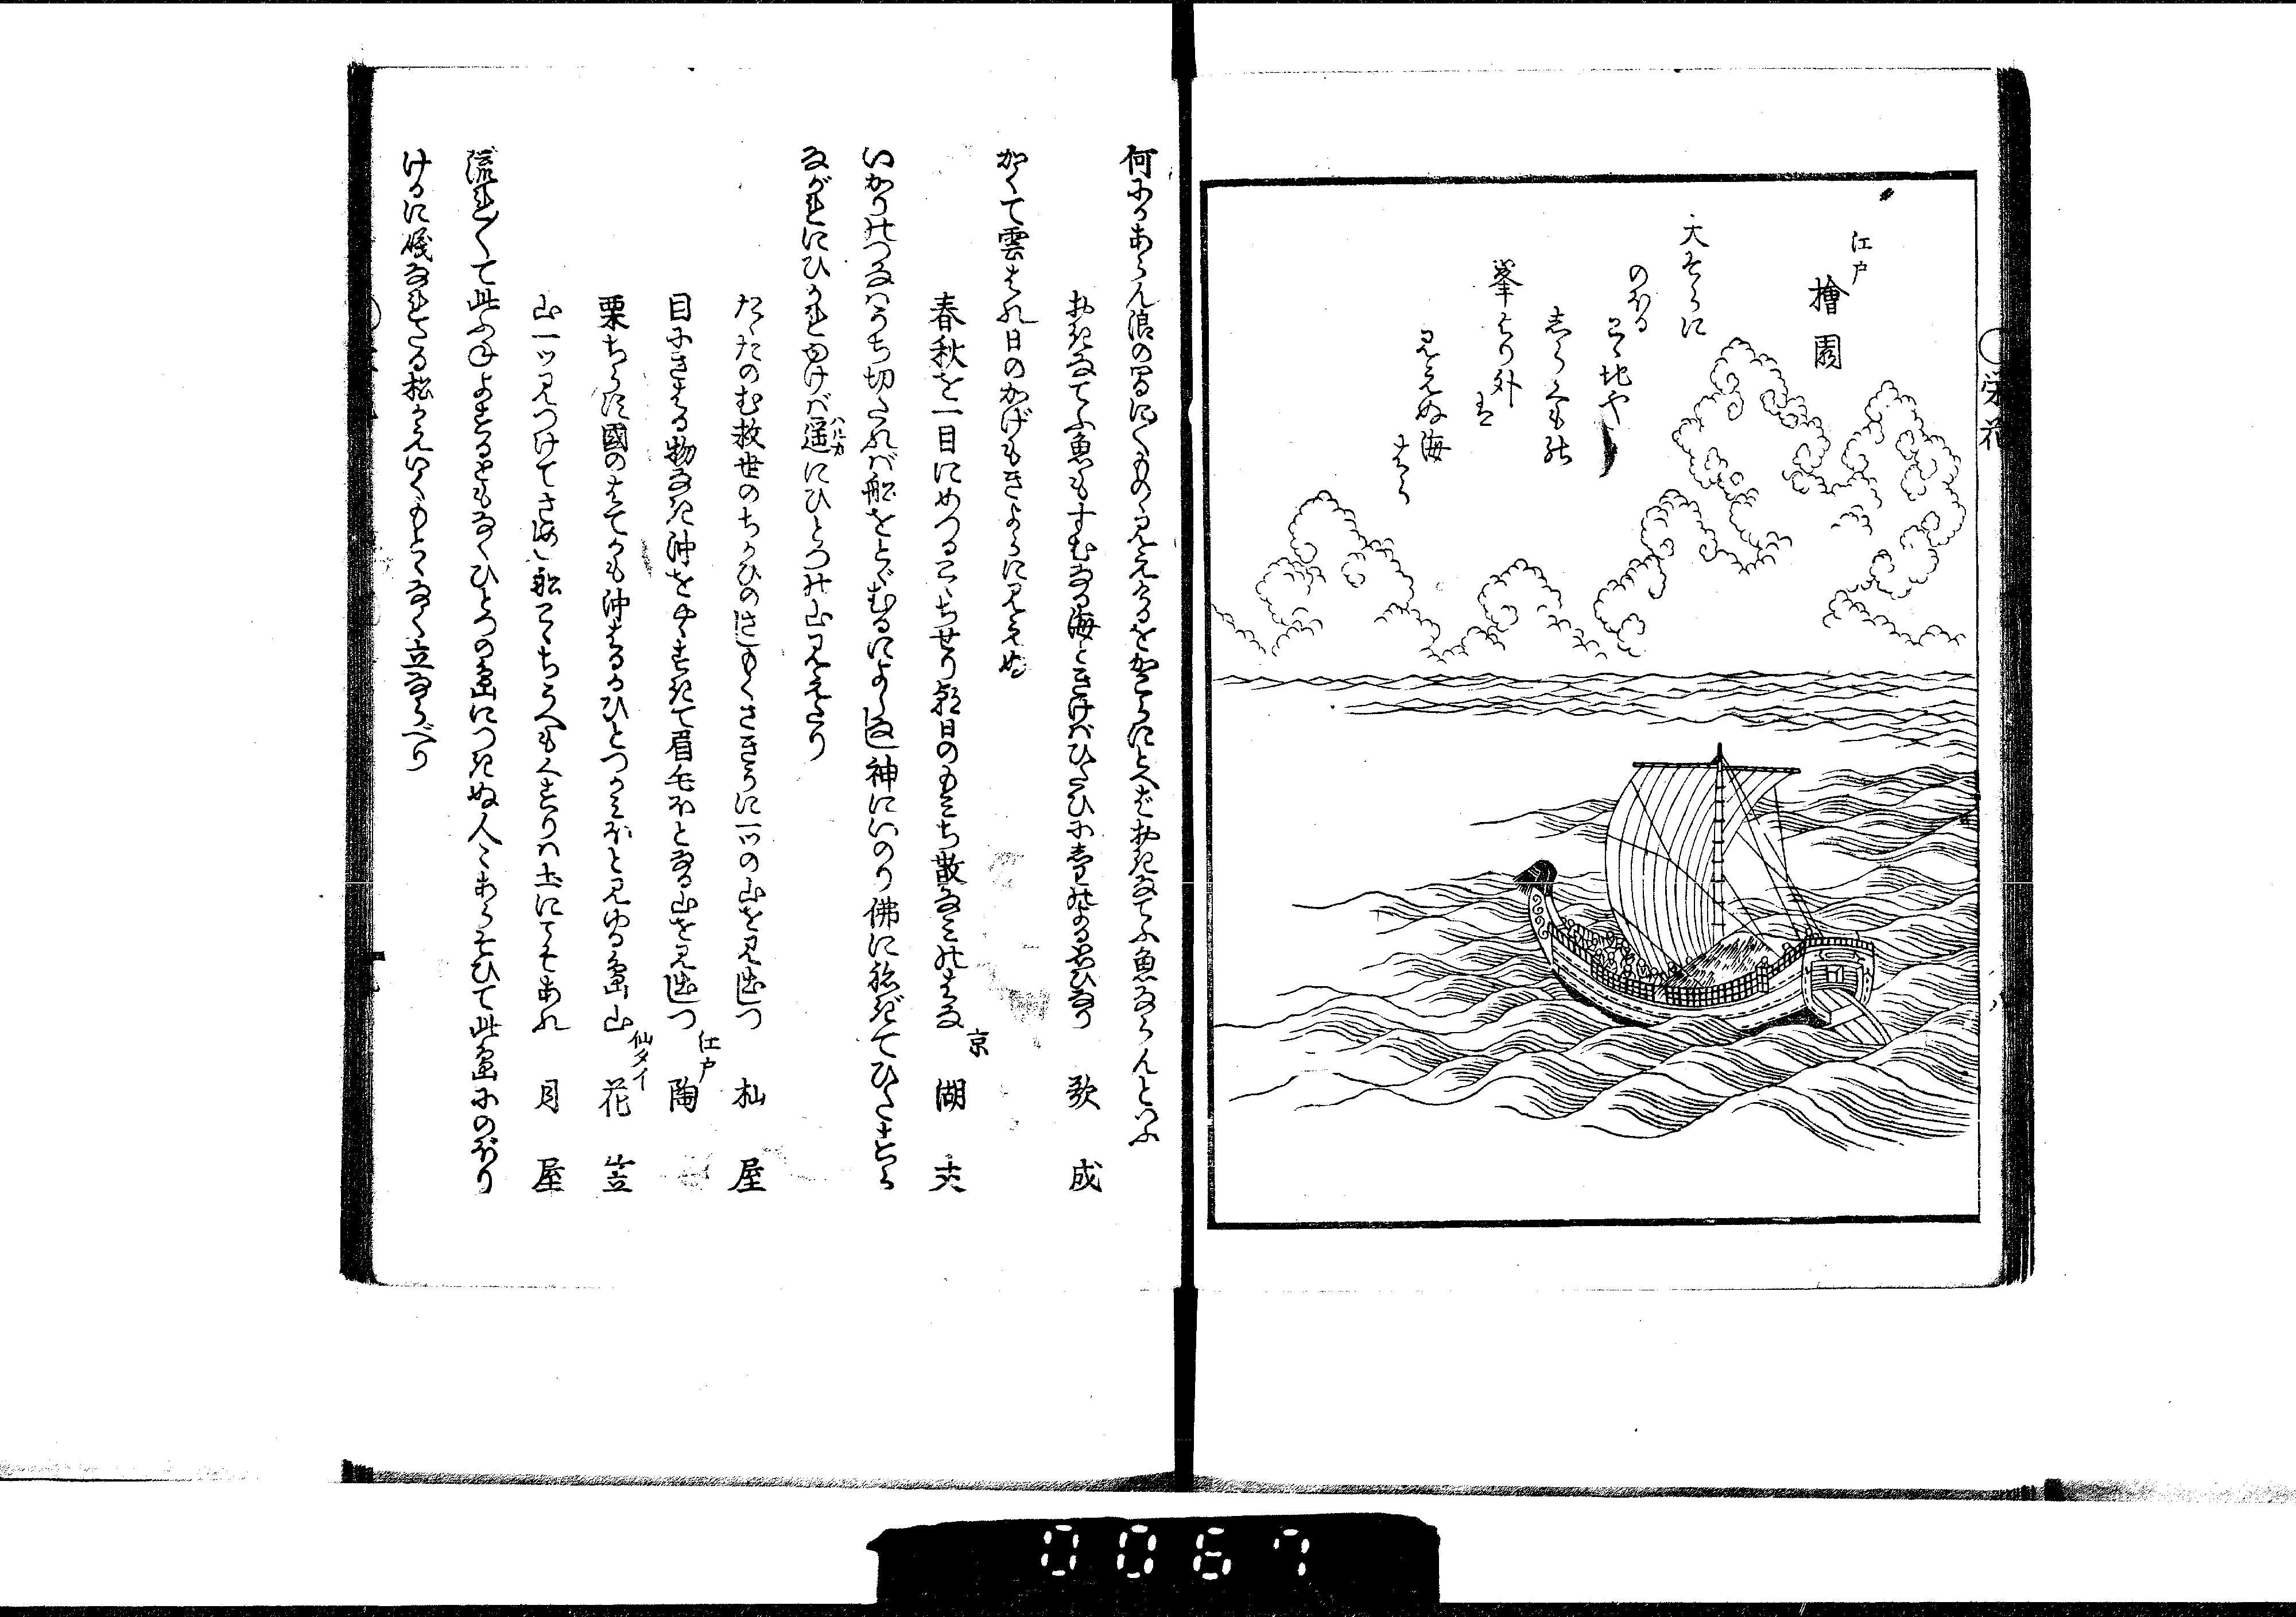 江戸
檜園
大そらに
のぼる
こゝ地や
しらくもの
峯より外
は
見えぬ海
はら
栄花
何にかあらん浪の間にくもの見えけるをかこらにとへばおきなてふ魚ならんといふ
おきなてふ魚もすむなる海ときけばひたひにしわのよる思ひなり 歌成
かくて雲はれ日のかげもきよらに見えそめ
春秋を一目にめつるこゝちせり朝日のもみち散なみのはな 京 湖丈
いかりのつなはうち切たれば船をとゞむるによしなし神にいのり佛に祢ぎてひたすら
ながれにひかれゆけば遥にひとつの山見えたり
ハルカ
たゝたのむ救世のちかひのさしもくささきうに一ツの山を見出つ 杣屋
目にさはる物なき沖をゆきすぎて眉毛ほとなる山を見出つ 江戸 陶
栗ちらす國のはてかも沖はるかひとつかみほと見ゆる島山 仙タイ 花笠
山一ツ見つけてさはく船こゝちうへもくすりは土にてそあれ 月屋
流れ〳〵て此ふねよするともなくひとつの島につきぬ人〻あらそひて此島にのぼり
けるに磯なれたる松かえいくもとゝなく立ならべり
0067